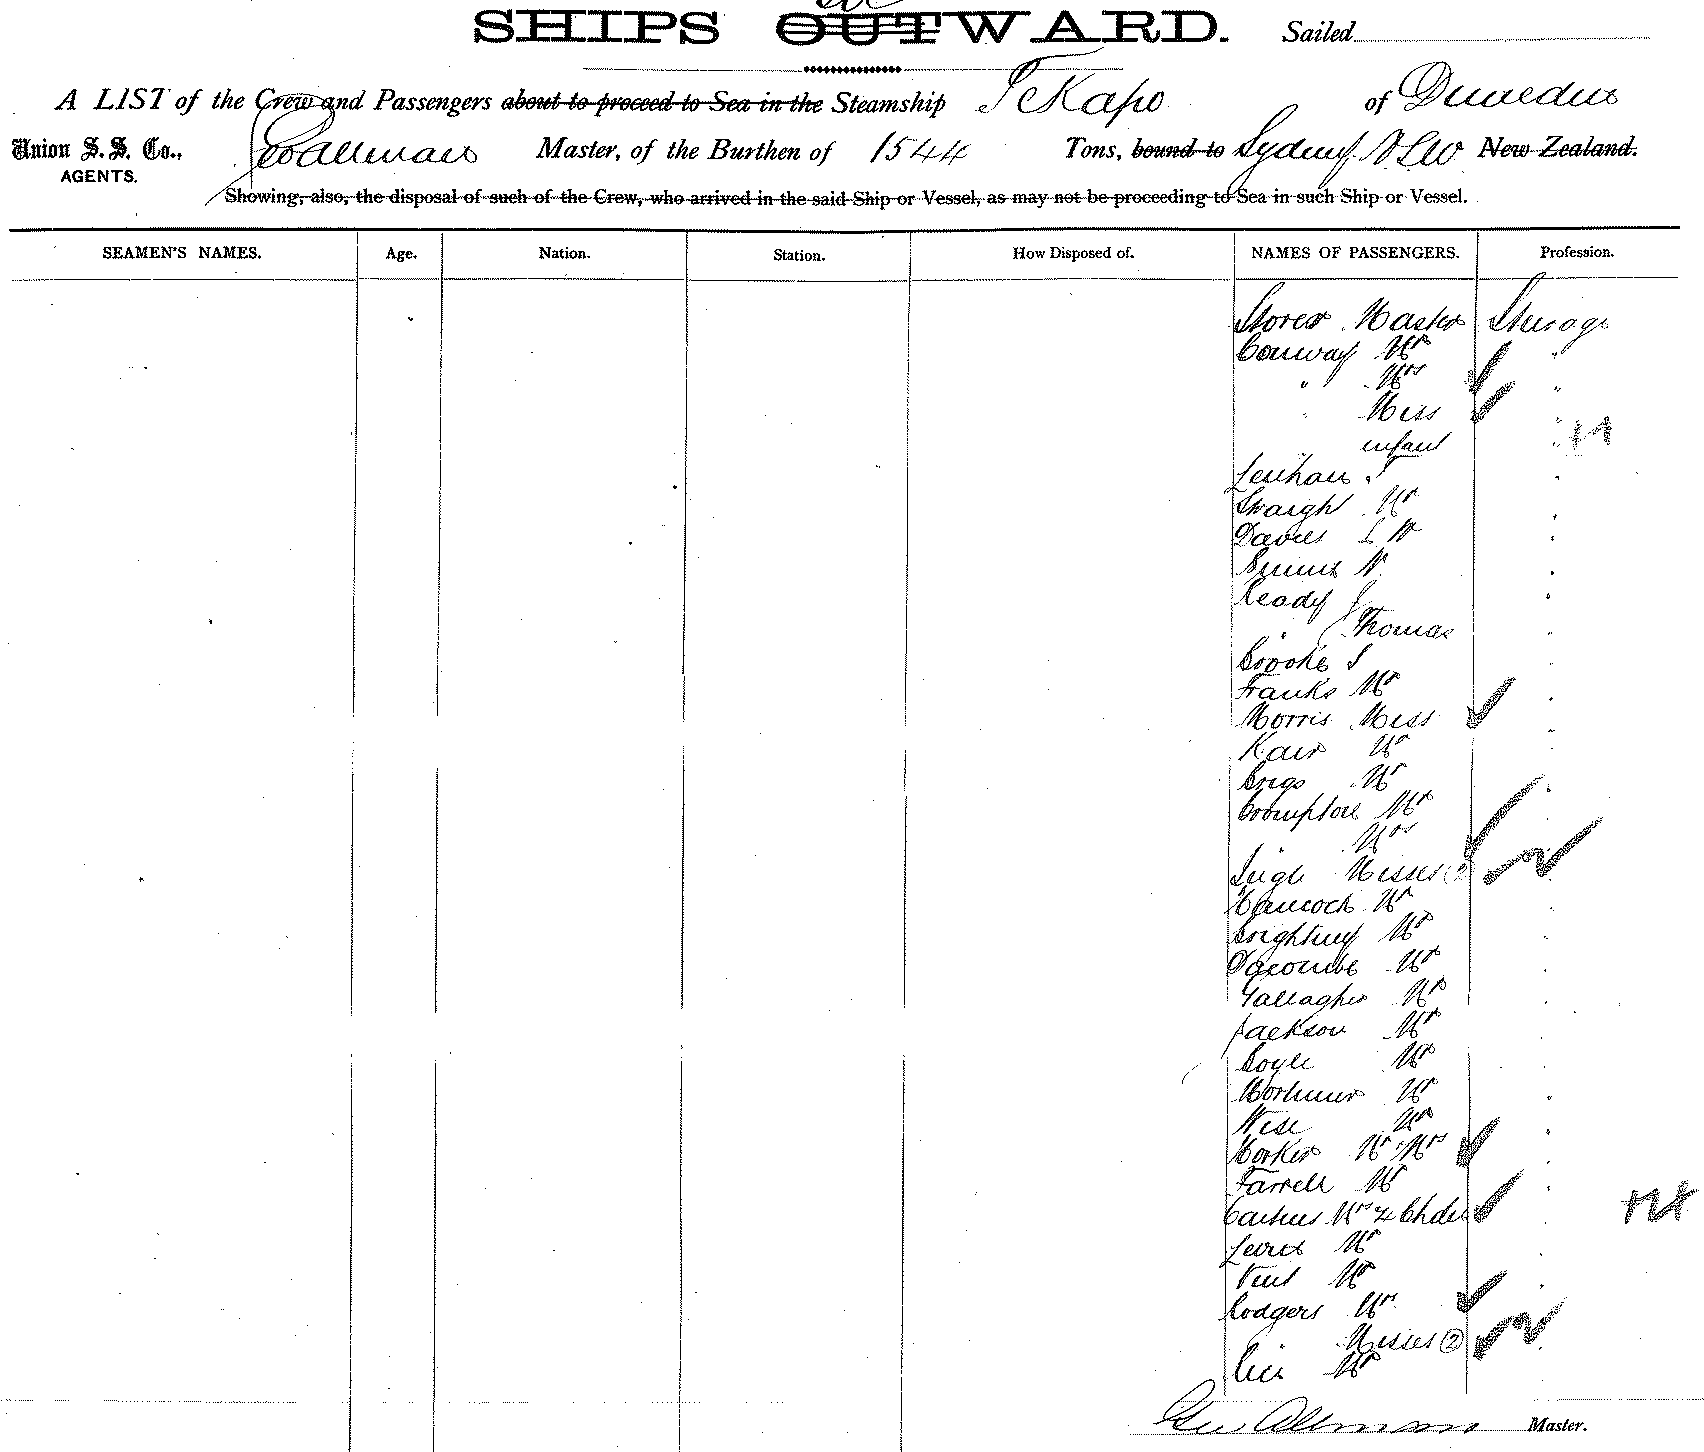 SHIPS OUTWARD. Sailed
A LIST of the Crew and Passengers about to proceed to Sea in the Steamship TeKapo of Dunedin
Union S. S. Co., AGENTS. G Allman Master, of the Burthen of 1544 Tons, bound to Sydney NSW New Zealand.
Showing, also, the disposal of such of the Crew, who arrived in the said Ship or Vessel, as may not be proceeding to Sea in such Ship or Vessel.
SEAMEN'S NAMES. Age. Nation. Station. How Disposed of. NAMES OF PASSENGERS. Profession.
Storer Master Steerage
Conway Mr "
" Mrs "
" Miss "
infant "
Lenhan J
Mr
Davies L W
W
Ready J
" Thomas
Brooks S
Franks Mr
Morris Miss
Kair Mr
Brigs Mr
Crompton Mr
" Mrs
Leigh Misses (2)
Hancock Mr
Brightney Mr
Dacombe Mr
Gallagher Mr
Jackson Mr
Boyle Mr
Mortimer Mr
Wise Mr
Mr Mrs
Farrell Mr
Mrs & Chdn
Lewis Mr
Vent Mr
Rodgers Mrs
" Misses (2)
Mr
Geo Allman Master.